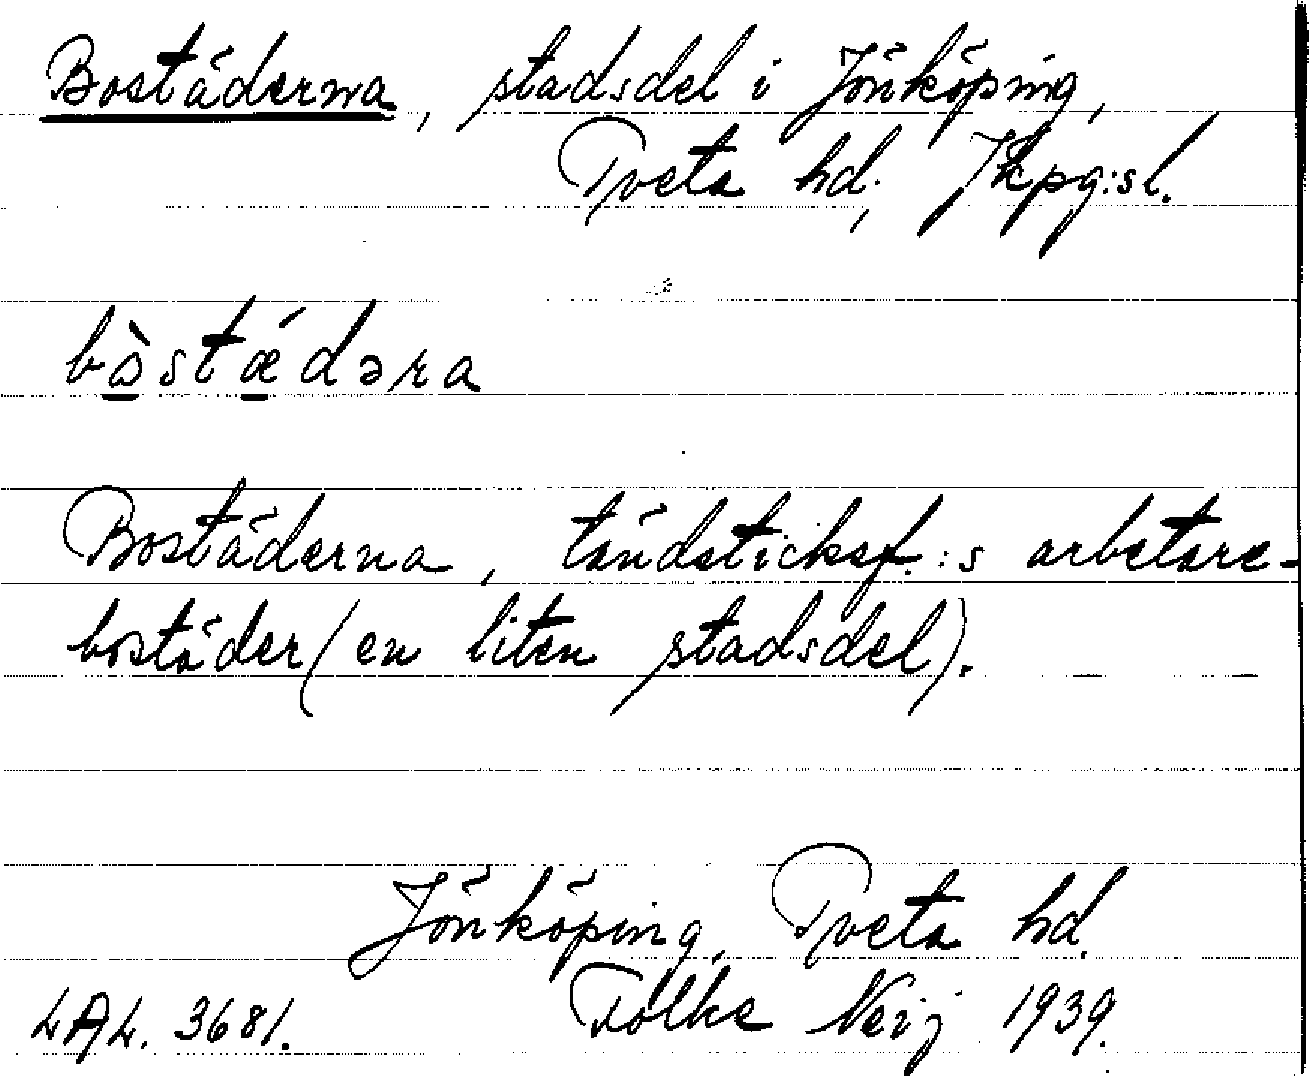 Bostäderna, stadsdel i Jönköping,
Tveta hd, Jkpg:sl.
bòstǽdəra
Bostäderna, tändsticksf.:s arbetare-
bostäder (en liten stadsdel).
Jönköping, Tveta hd.
LAL. 3681. Folke Neij 1939.